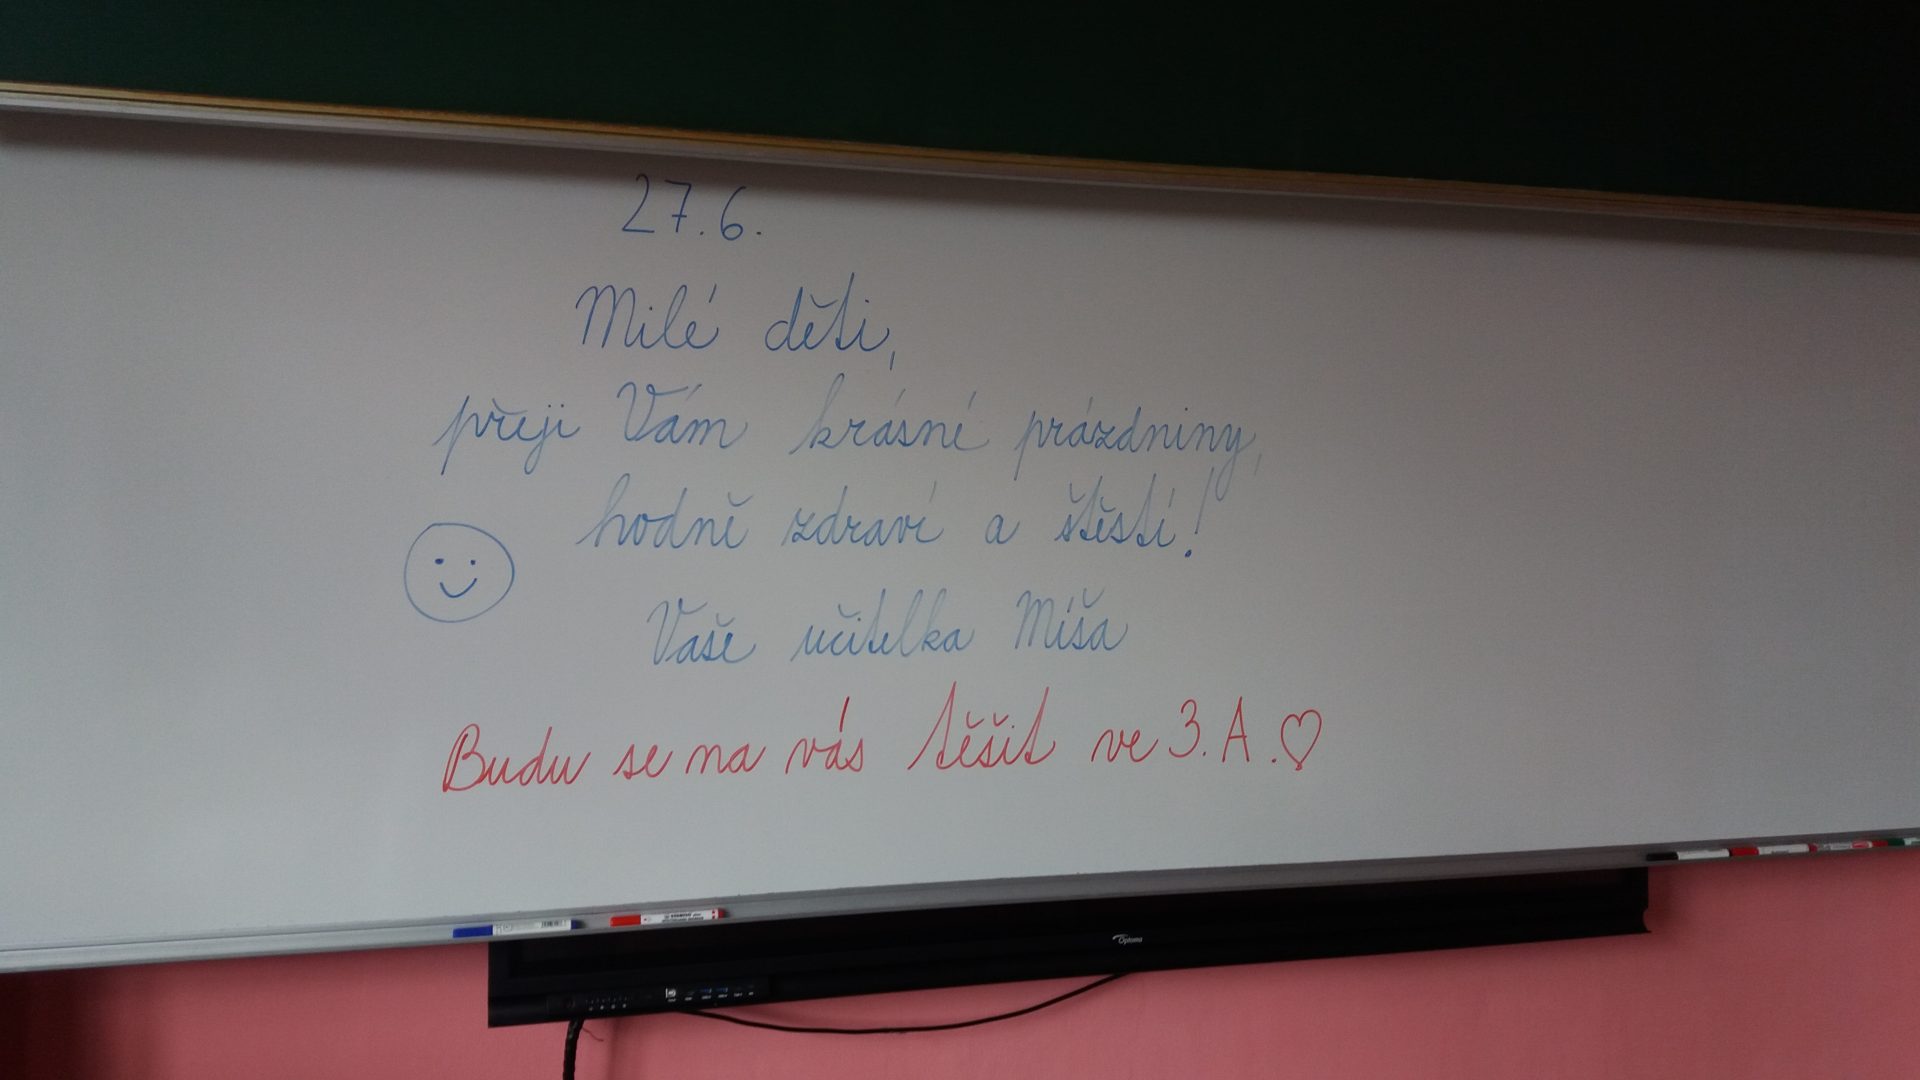 27.6.
Milé děti,
přeji Vám krásné prázdniny,
hodně zdraví a štěstí!
Vaše učitelka Míša
Budu se na vás těšit ve 3. A.♡
Optoma